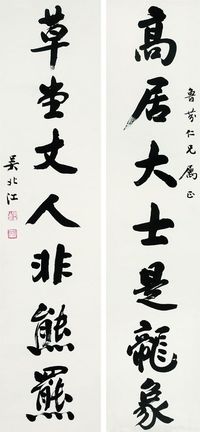 高居大士是龍象
魯芬仁兄属正
草堂丈人非熊羆
吴北江